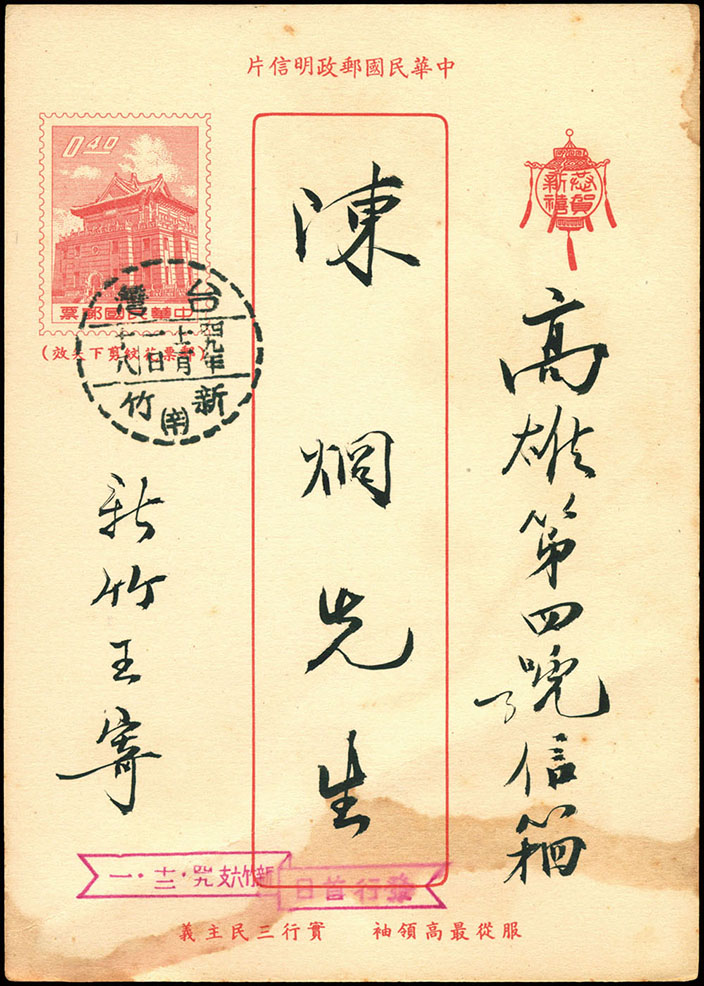 中華民國郵政明信片
恭賀新禧
高雄第四號信箱
陳炯先生
0.40
中華民國郵票
(郵票花紋剪下失效)
台灣
四九年
十二月
一日
十八
新竹
新竹王寄
發行首日
新竹六支
服從最高領袖 實行三民主義